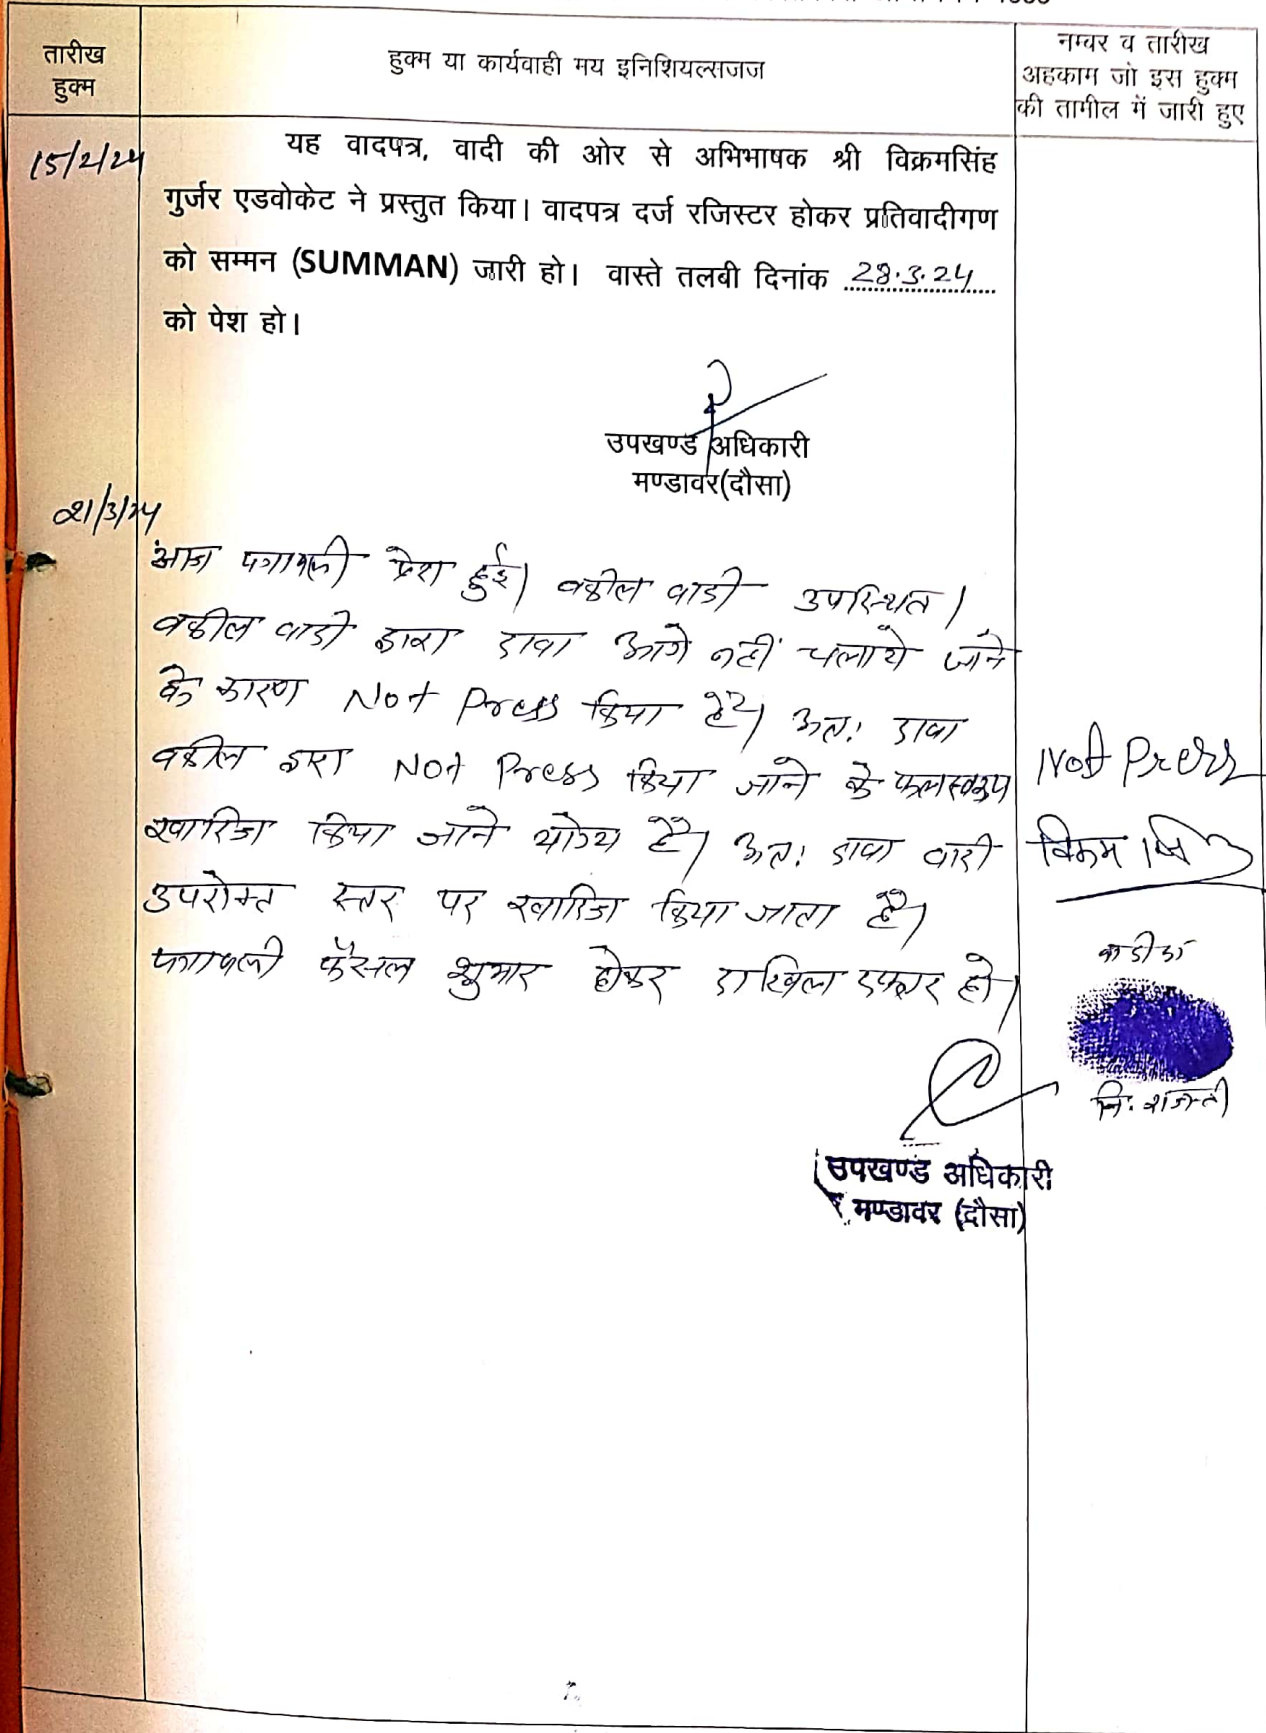 तारीख
हुक्म
हुक्म या कार्यवाही मय इनिशियल्सजज
नम्वर व तारीख
अहकाम जो इस हुक्म
की तामील में जारी हुए
15/2/24
यह वादपत्र, वादी की ओर से अभिभाषक श्री विक्रमसिंह
गुर्जर एडवोकेट ने प्रस्तुत किया। वादपत्र दर्ज रजिस्टर होकर प्रतिवादीगण
को सम्मन (SUMMAN) जारी हो। वास्ते तलबी दिनांक 28.3.24
को पेश हो।
उपखण्ड अधिकारी
मण्डावर(दौसा)
21/3/24
आज पत्रावली पेश हुई। वकील वादी उपस्थित।
वकील वादी द्वारा दावा आगे नहीं चलाये जाने
के कारण Not Press किया है। अतः दावा
वकील द्वारा Not Press किया जाने के फलस्वरूप
खारिज किया जाने योग्य है। अतः दावा वादी
उपरोक्त स्तर पर खारिज किया जाता है।
पत्रावली फैसल शुमार होकर दाखिल दफ्तर हो।
Not Press
विक्रम सिंह
उपखण्ड अधिकारी
मण्डावर (दौसा)